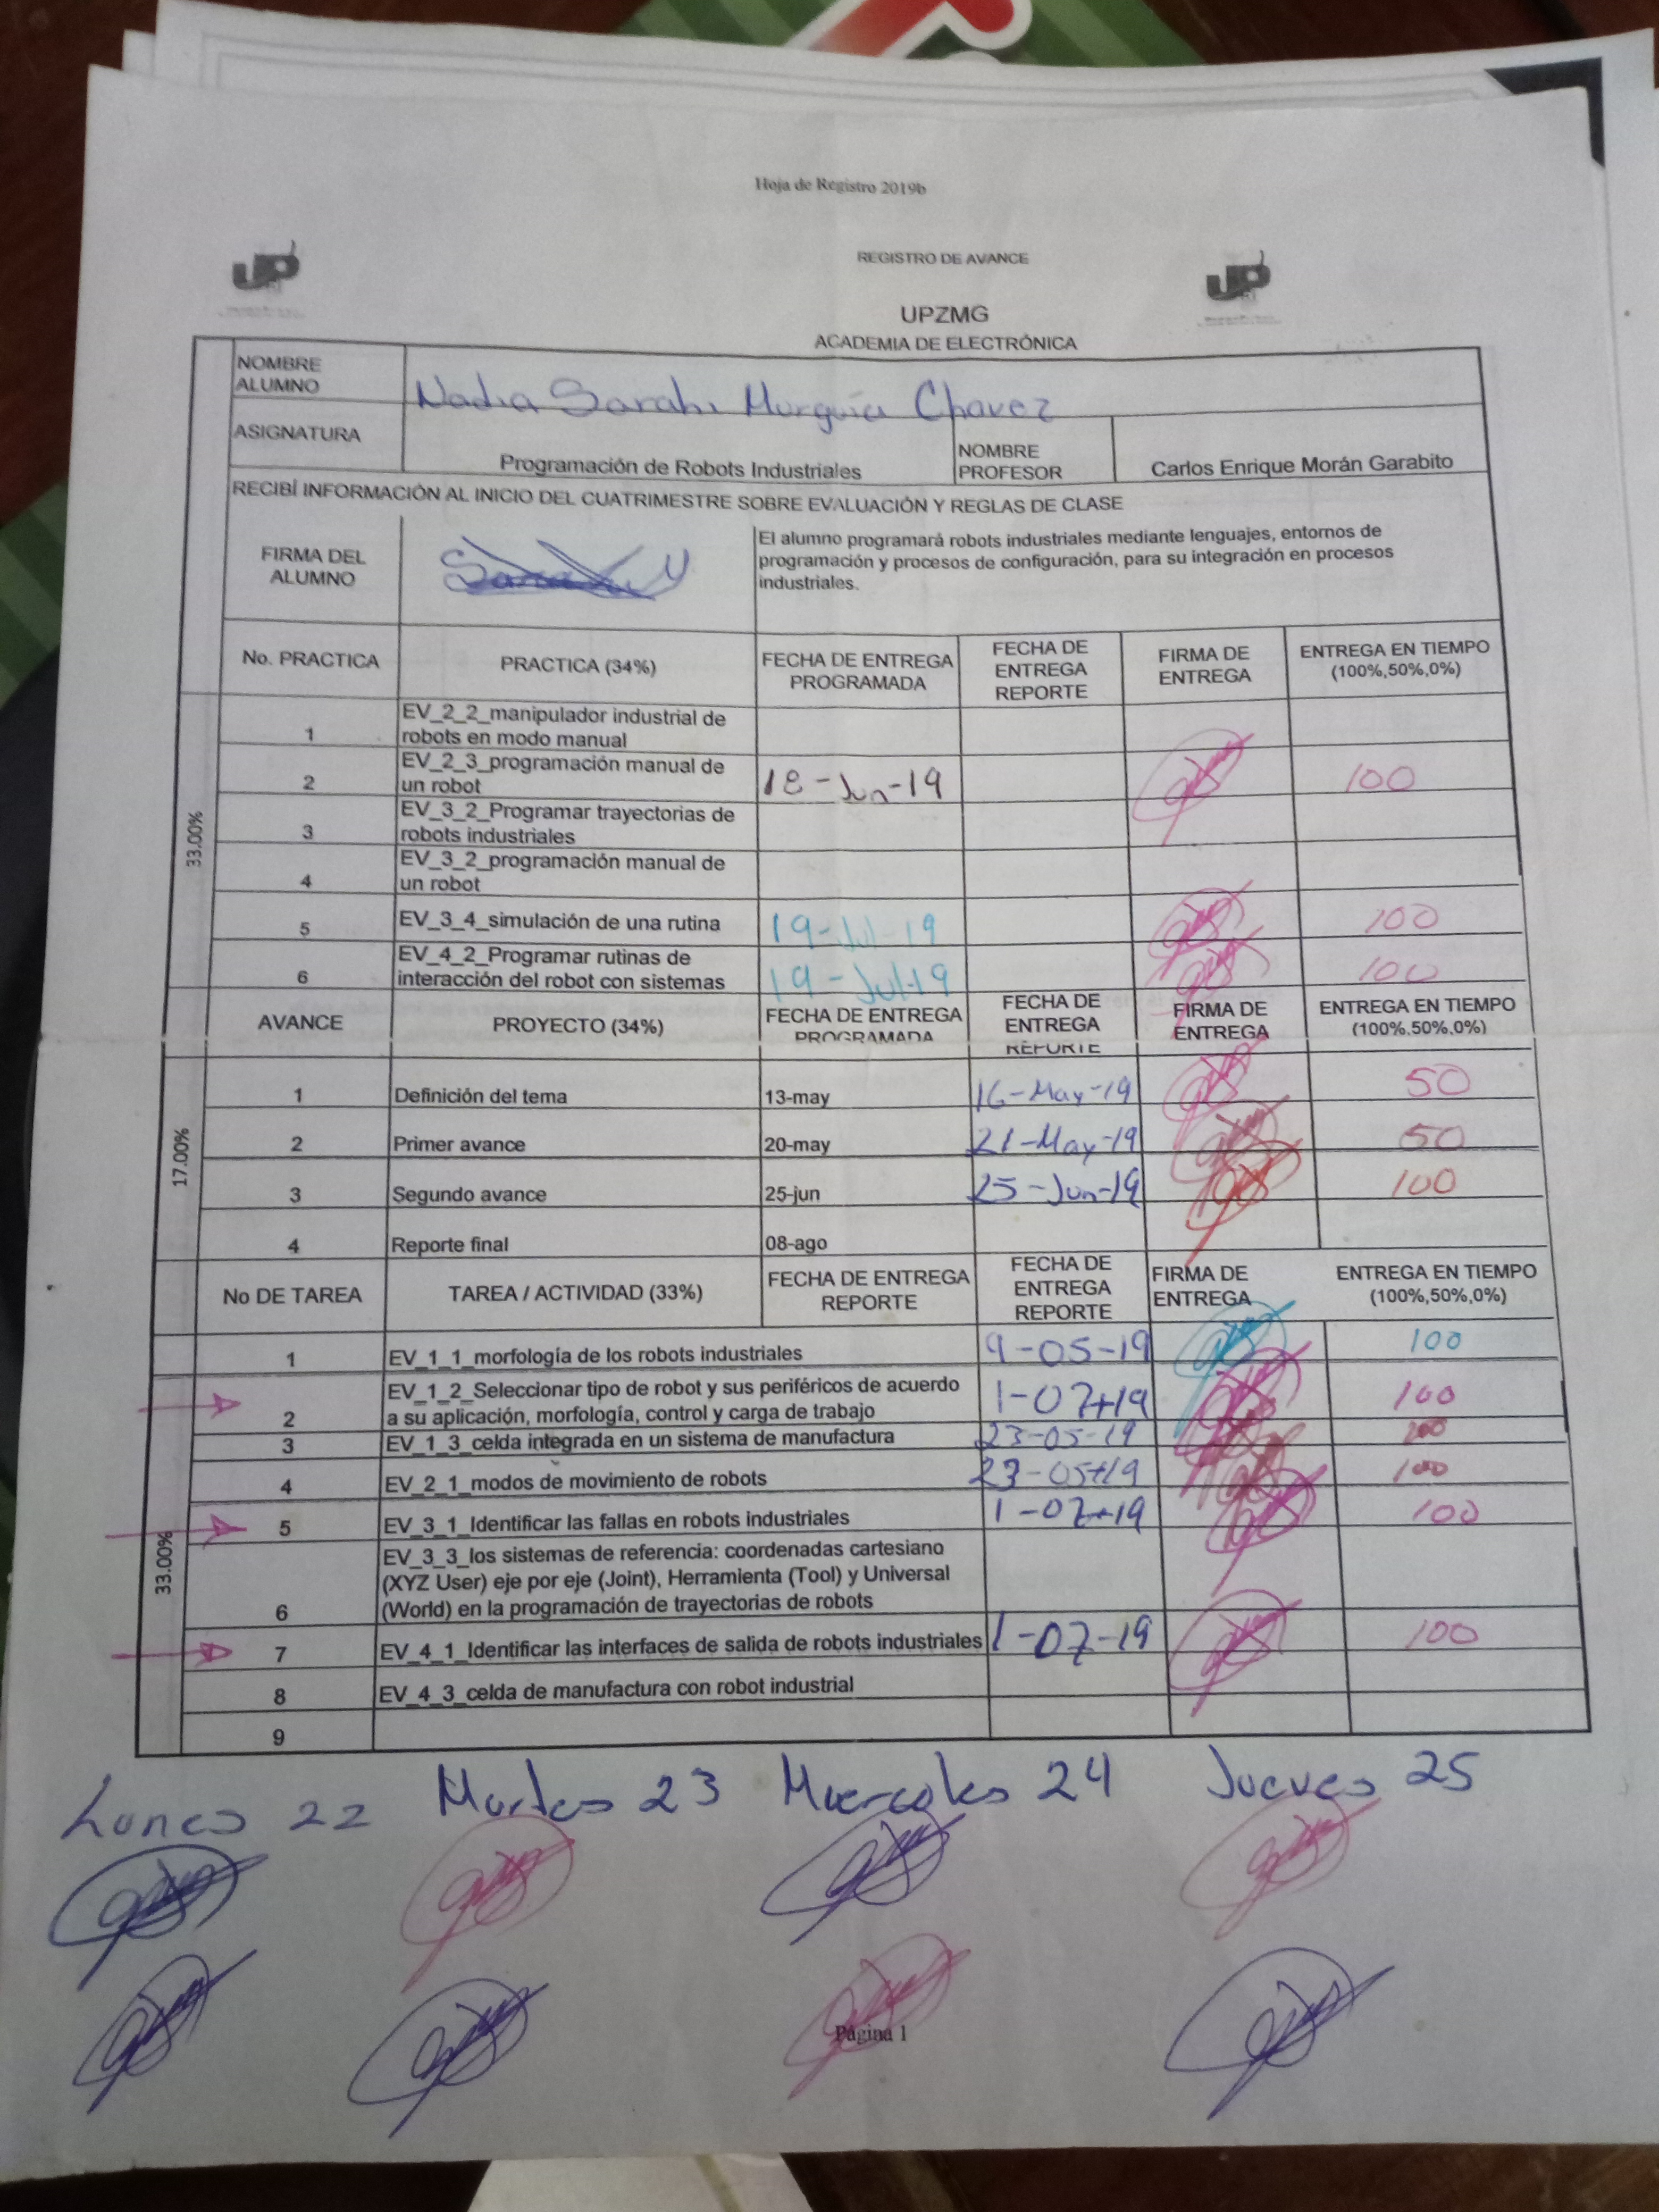 Hoja de Registro 2019b
REGISTRO DE AVANCE
UP UP
UPZMG
ACADEMIA DE ELECTRÓNICA
NOMBRE ALUMNO Nadia Sarahi Murguia Chavez
ASIGNATURA Programación de Robots Industriales NOMBRE PROFESOR Carlos Enrique Morán Garabito
RECIBÍ INFORMACIÓN AL INICIO DEL CUATRIMESTRE SOBRE EVALUACIÓN Y REGLAS DE CLASE
FIRMA DEL ALUMNO
El alumno programará robots industriales mediante lenguajes, entornos de
programación y procesos de configuración, para su integración en procesos
industriales.
No. PRACTICA PRACTICA (34%) FECHA DE ENTREGA PROGRAMADA FECHA DE ENTREGA REPORTE FIRMA DE ENTREGA ENTREGA EN TIEMPO (100%,50%,0%)
33.00%
1 EV_2_2_manipulador industrial de robots en modo manual
2 EV_2_3_programación manual de un robot 18-Jun-19 100
3 EV_3_2_Programar trayectorias de robots industriales
4 EV_3_2_programación manual de un robot
5 EV_3_4_simulación de una rutina 19-Jul-19 100
6 EV_4_2_Programar rutinas de interacción del robot con sistemas 19-Jul-19 100
AVANCE PROYECTO (34%) FECHA DE ENTREGA PROGRAMADA FECHA DE ENTREGA REPORTE FIRMA DE ENTREGA ENTREGA EN TIEMPO (100%.50%,0%)
17.00%
1 Definición del tema 13-may 16-May-19 50
2 Primer avance 20-may 21-May-19 50
3 Segundo avance 25-jun 25-Jun-19 100
4 Reporte final 08-ago
No DE TAREA TAREA / ACTIVIDAD (33%) FECHA DE ENTREGA REPORTE FECHA DE ENTREGA REPORTE FIRMA DE ENTREGA ENTREGA EN TIEMPO (100%,50%,0%)
33.00%
1 EV_1_1_morfología de los robots industriales 9-05-19 100
2 EV_1_2_Seleccionar tipo de robot y sus periféricos de acuerdo a su aplicación, morfología, control y carga de trabajo 1-07-19 100
3 EV_1_3_celda integrada en un sistema de manufactura 23-05-19 100
4 EV_2_1_modos de movimiento de robots 23-05-19 100
5 EV_3_1_Identificar las fallas en robots industriales 1-07-19 100
6 EV_3_3_los sistemas de referencia: coordenadas cartesiano (XYZ User) eje por eje (Joint), Herramienta (Tool) y Universal (World) en la programación de trayectorias de robots
7 EV_4_1_Identificar las interfaces de salida de robots industriales 1-07-19 100
8 EV_4_3_celda de manufactura con robot industrial
9
Lunes 22 Martes 23 Miercoles 24 Jueves 25
Página 1